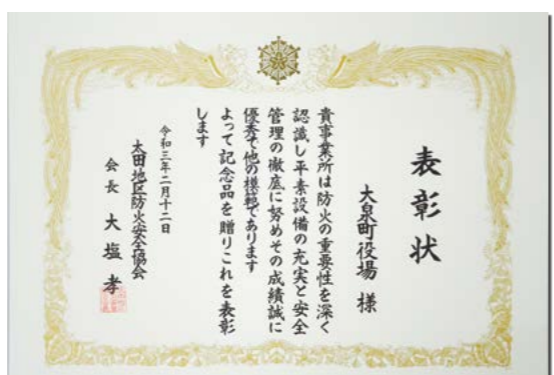 表彰状
大泉町役場 様
貴事業所は防火の重要性を深く
認識し平素設備の充実と安全
管理の徹底に努めその成績誠に
優秀で他の模範であります
よって記念品を贈りこれを表彰
します
令和三年二月十二日
太田地区防火安全協会
会長 大塩 孝